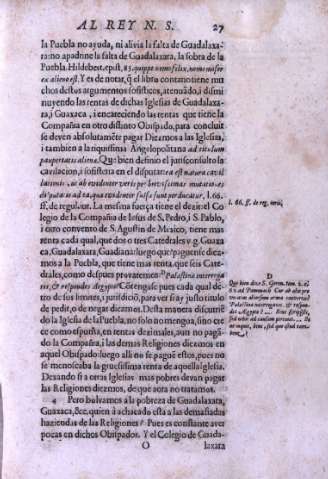 AL REY N. S. 27
la Puebla no ayuda, ni alivia la falta de Guadalaxa-
ra: no apadrine la falta de Guadalaxara, la sobra de la
Puebla. Hildebert. epist. 83.
alieno est. Y es de notar, q̃ el libro contario tiene mu
chos destos argumentos sofisticos, atenuãdo, i dismi
nuyendo las rentas de dichas Iglesias de Guadalaxa-
ra, i Guaxaca, i encareciendo las rentas que tiene la
Compañia en otro distinto Obispado, para concluir
se deven absolutamẽte pagar Diezmos a las Iglesias,
i tambien a la riquissima Angelopolitana
paupertatis aliena. Que bien definio el jurisconsulto la
cavilacion, i sofisteria en el disputar: ea est natura cavil
lationis, ut ab evidenter veris per brevissimas mutatio-
disputatio ad ea, quæ evidenter falsa sunt perducatur, l.
66. ff. de regul. iur. La mesma fuerça tiene el dezir el Co
legio de la Compañia de Iesus de S. Pedro, i S. Pablo,
i otro convento de S. Agustin de Mexico, tiene mas
renta cada qual, que dos o tres Catedrales v.g. Guaxa
ca, Guadalaxara, Guadiana: luego que paguense diez-
mos a la Puebla, que tiene mas renta, que seis Cate-
drales, como despues provaremos: Palestina interroga
ris, & respondes Ægyptum? Cotengase pues cada qual dẽ-
tro de sus limites, i jurisdicion, para ver si ay justo titulo
de pedir, o de negar diezmos. Desta manera discurriẽ-
do la Iglesia de la Puebla, no solo no mengua, sino cre
ce como espuma, en rentas dezimales, aun no pagã-
do la Compañia, i las demas Religiones diezmos en
aquel Obispado: luego alli no se pagò estos, pues no
se menoscaba la gruessissima renta de aquella Iglesia.
Dexando si a otras Iglesias mas pobres devan pagar
las Religiones diezmos, de que aora no tratamos.
4 Pero bolvamos a la pobreza de Guadalaxara,
Guaxaca, &c. quien à achacado esta a las demasiadas
haziendas de las Religiones? Pues es constante aver
pocas en dichos Obispados. Y el Colegio de Guada-
O laxara
l. 66. ff. de reg. iuris.
D
Que bien dixo S. Geron. tom. 2. ep.
61 ad Pammach. Cur ab alia pro
vincia
Palestina interrogaris, & respon-
des Ægypto?